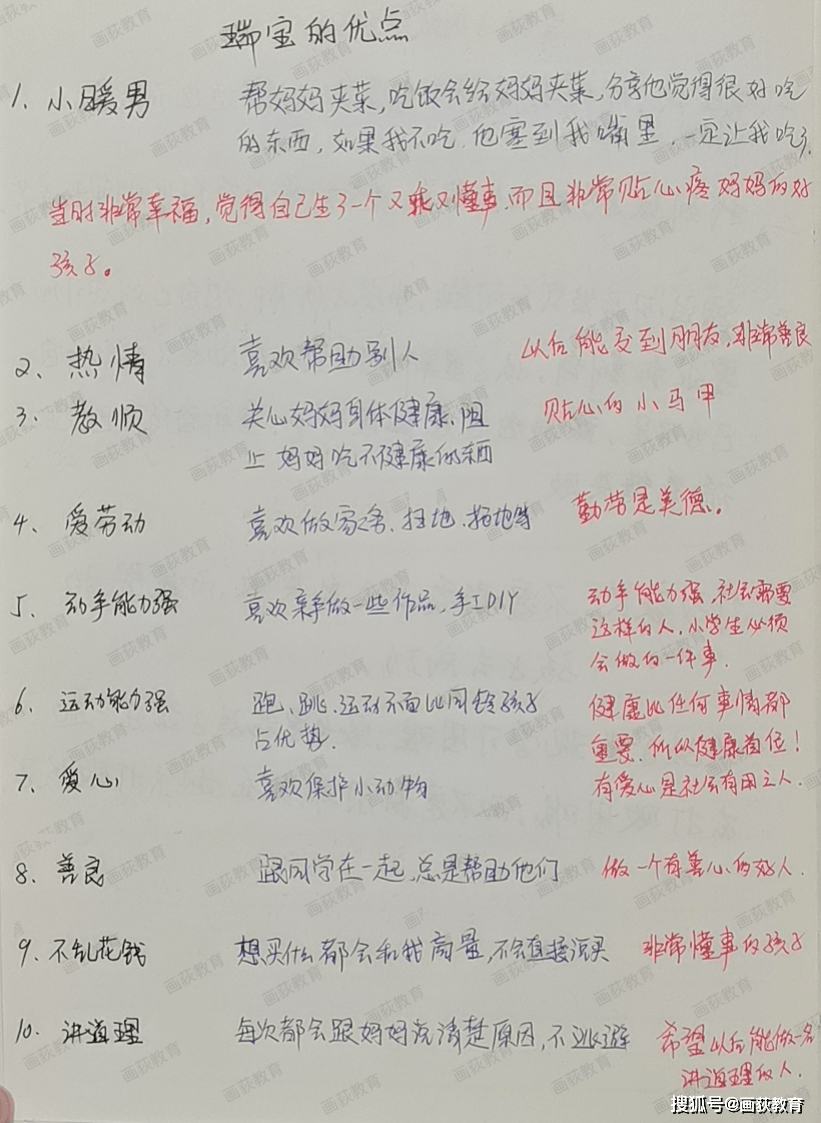 瑞宝的优点
1、小暖男 帮妈妈夹菜，吃饭会给妈妈夹菜，分享他觉得很好吃
的东西，如果我不吃，他塞到我嘴里，一定让我吃了，
当时非常幸福，觉得自己生了一个又乖又懂事，而且非常贴心疼妈妈的好
孩子。
2、热情 喜欢帮助别人 以后能交到朋友，非常善良
3、孝顺 关心妈妈身体健康、阻 贴心的小马甲
止妈妈吃不健康的东西
4、爱劳动 喜欢做家务、扫地、拖地等 勤劳是美德。
5、动手能力强 喜欢亲手做一些作品，手工DIY 动手能力强，社会需要
这样的人，小学生必须
会做的一件事．
6、运动能力强 跑、跳、运动方面比同龄孩子 健康比任何事情都
占优势． 重要，所以健康首位！
7、爱心 喜欢保护小动物 有爱心是社会有用之人．
8、善良 跟同学在一起，总是帮助他们 做一个有善心的好人．
9、不乱花钱 想买什么都会和我商量，不会直接说买 非常懂事的孩子
10、讲道理 每次都会跟妈妈说清楚原因，不逃避 希望以后能做一名
讲道理的人．
搜狐号@画荻教育
画荻教育